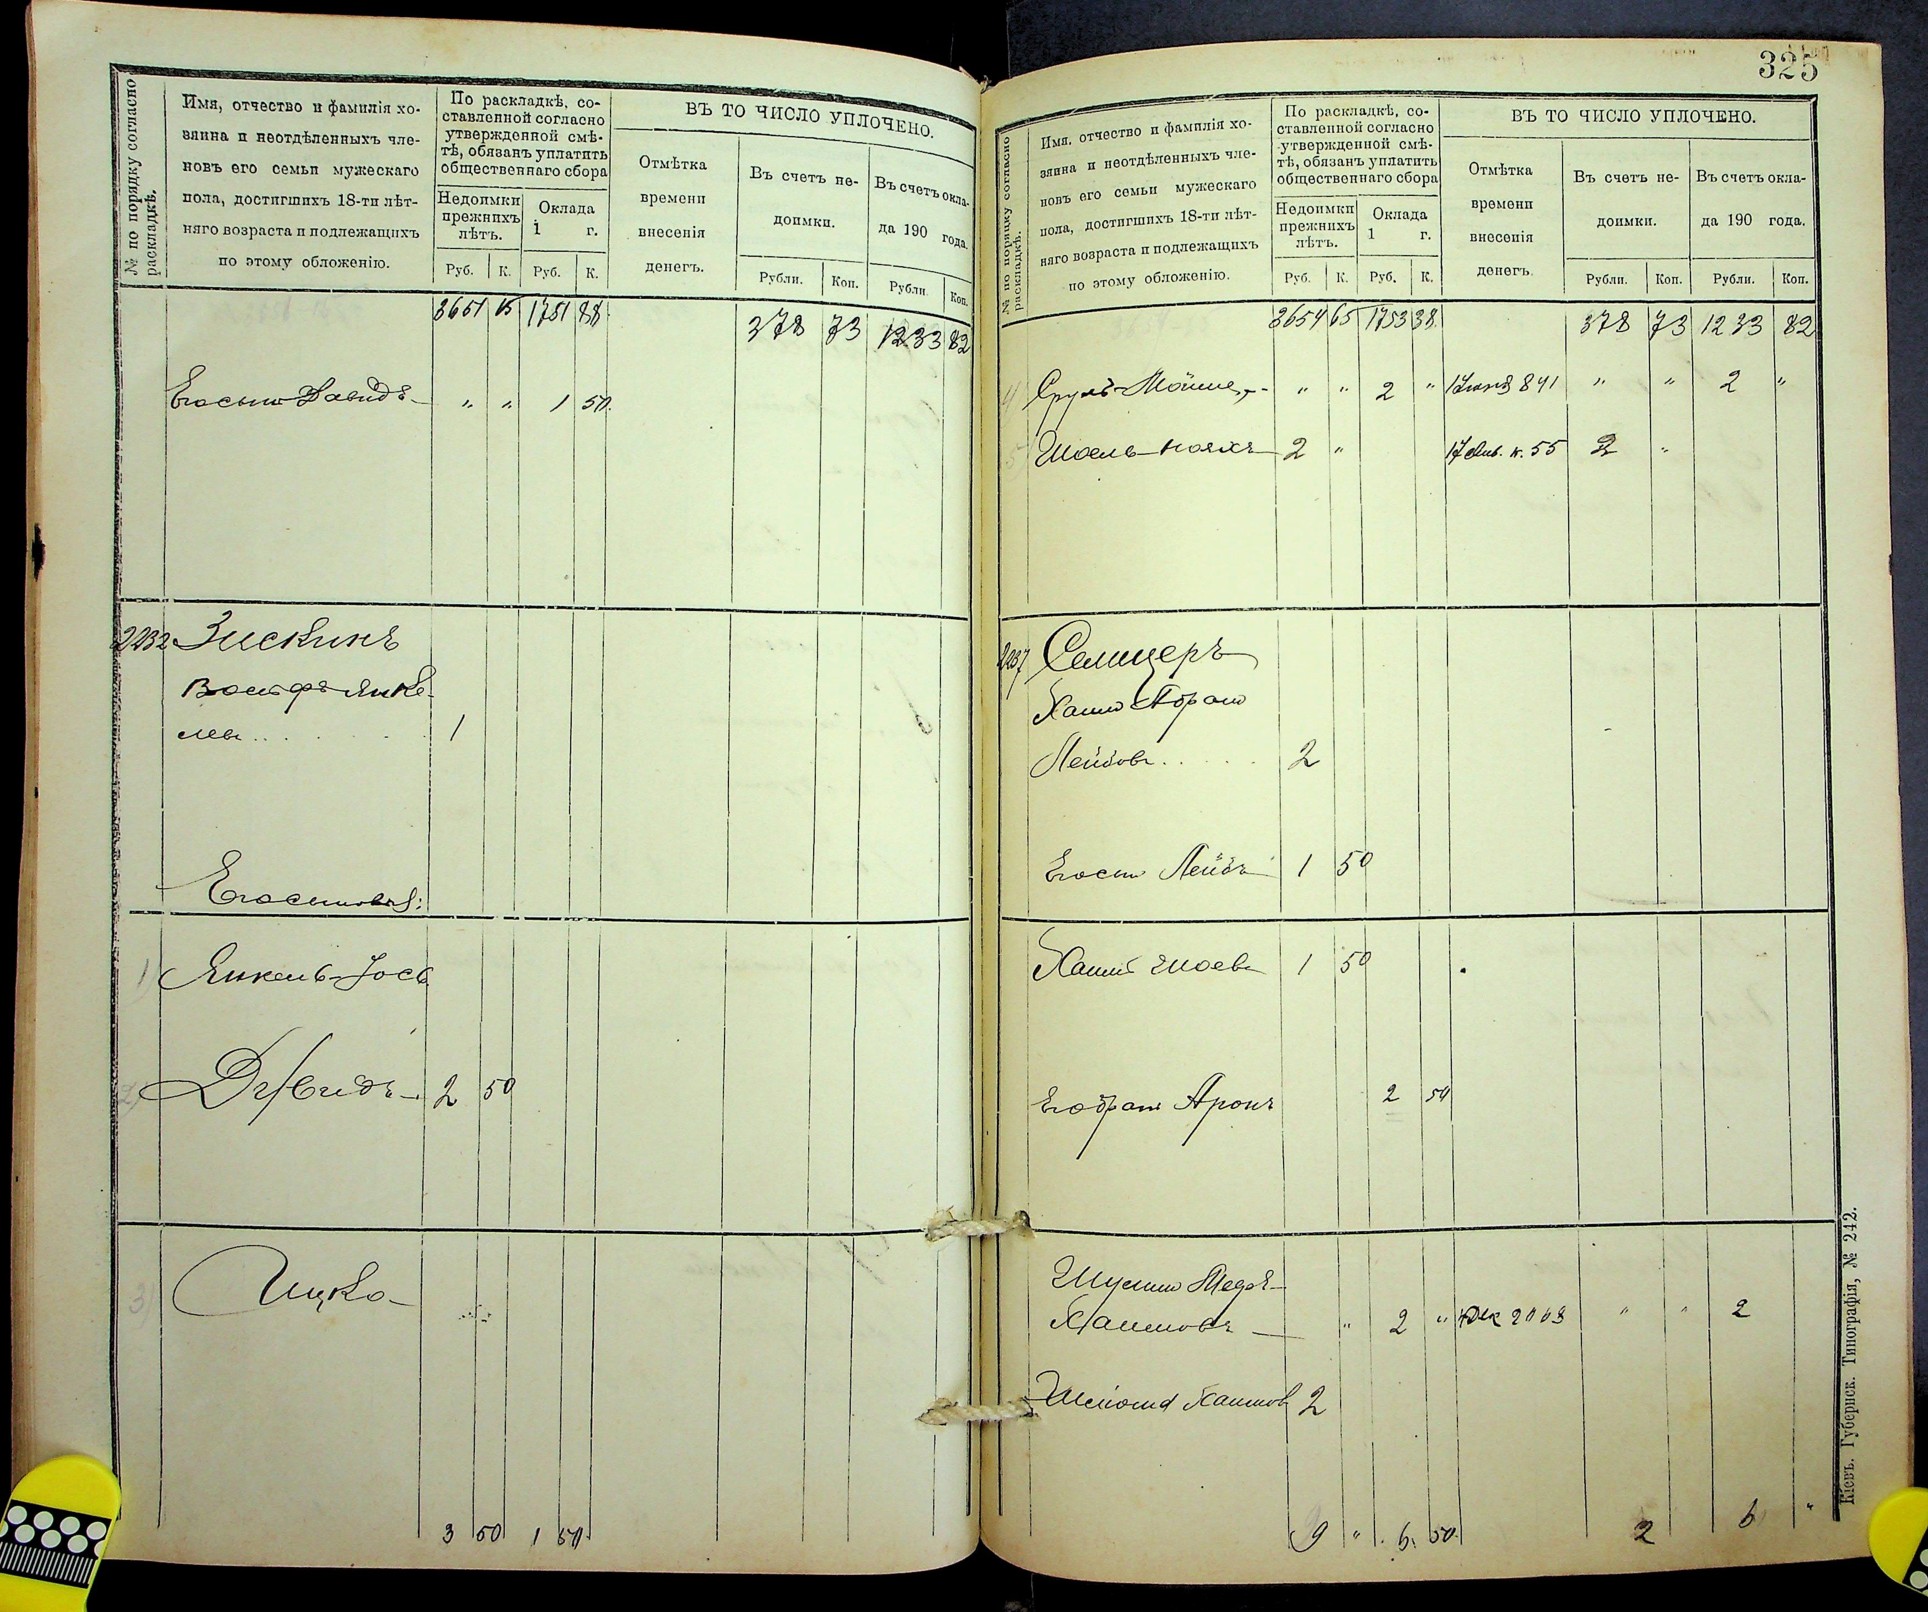 № по порядку согласно
раскладкѣ.
Имя, отчество и фамилія хо-
зяина и неотдѣленныхъ чле-
новъ его семьи мужескаго
пола, достигшихъ 18-ти лѣт-
няго возраста и подлежащихъ
по этому обложенію.
По раскладкѣ, со-
ставленной согласно
утвержденной смѣ-
тѣ, обязанъ уплатить
общественнаго сбора
Недоимки
прежнихъ
лѣтъ.
Оклада
1 г.
Руб. К. Руб. К.
ВЪ ТО ЧИСЛО УПЛОЧЕНО.
Отмѣтка
времени
внесенія
денегъ.
Въ счетъ не-
доимки.
Рубли. Коп.
Въ счетъ окла-
да 190 года.
Рубли Коп.
3651 15 1751 88
378 73 1233 82
Его сынъ Давидъ " " 1 50
2232 Зискинъ
Вольфъ Янке-
левъ 1
Его сыновья:
1) Янкель-Іось
2) Давидъ 2 50
3) Ицко
3 50 1 50
325
№ по порядку согласно
раскладкѣ.
Имя, отчество и фамилія хо-
зяина и неотдѣленныхъ чле-
новъ его семьи мужескаго
пола, достигшихъ 18-ти лѣт-
няго возраста и подлежащихъ
по этому обложенію.
По раскладкѣ, со-
ставленной согласно
утвержденной смѣ-
тѣ, обязанъ уплатить
общественнаго сбора
Недоимки
прежнихъ
лѣтъ.
Оклада
1 г.
Руб. К. Руб. К.
ВЪ ТО ЧИСЛО УПЛОЧЕНО.
Отмѣтка
времени
внесенія
денегъ.
Въ счетъ не-
доимки.
Рубли. Коп.
Въ счетъ окла-
да 190 года.
Рубли. Коп.
3654 65 1753 38
378 73 1233 82
4) Сруль-Мойше " " 2 " 841 " " 2 "
5) Шоель 2 " 17 к. 55 2 "
2237 Селицеръ
Хаимъ Абрамъ
Лейбовъ 2
Его сынъ Лейбъ 1 50
Хаимъ 1 50
Его братъ Аронъ 2 50
Хаимовъ " 2 " " " 2
Хаимов 2
9 " 6 50 2 6 "
Кіевъ. Губернск. Типографія, № 242.